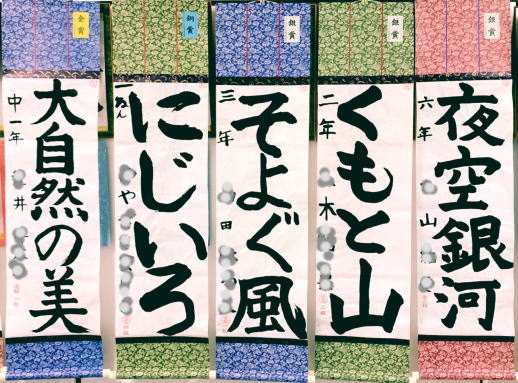 銀賞
夜空銀河
六年
山
銀賞
くもと山
二年
木
銀賞
そよぐ風
三年
田
銅賞
にじいろ
一ねん
や
金賞
大自然の美
中一年
井